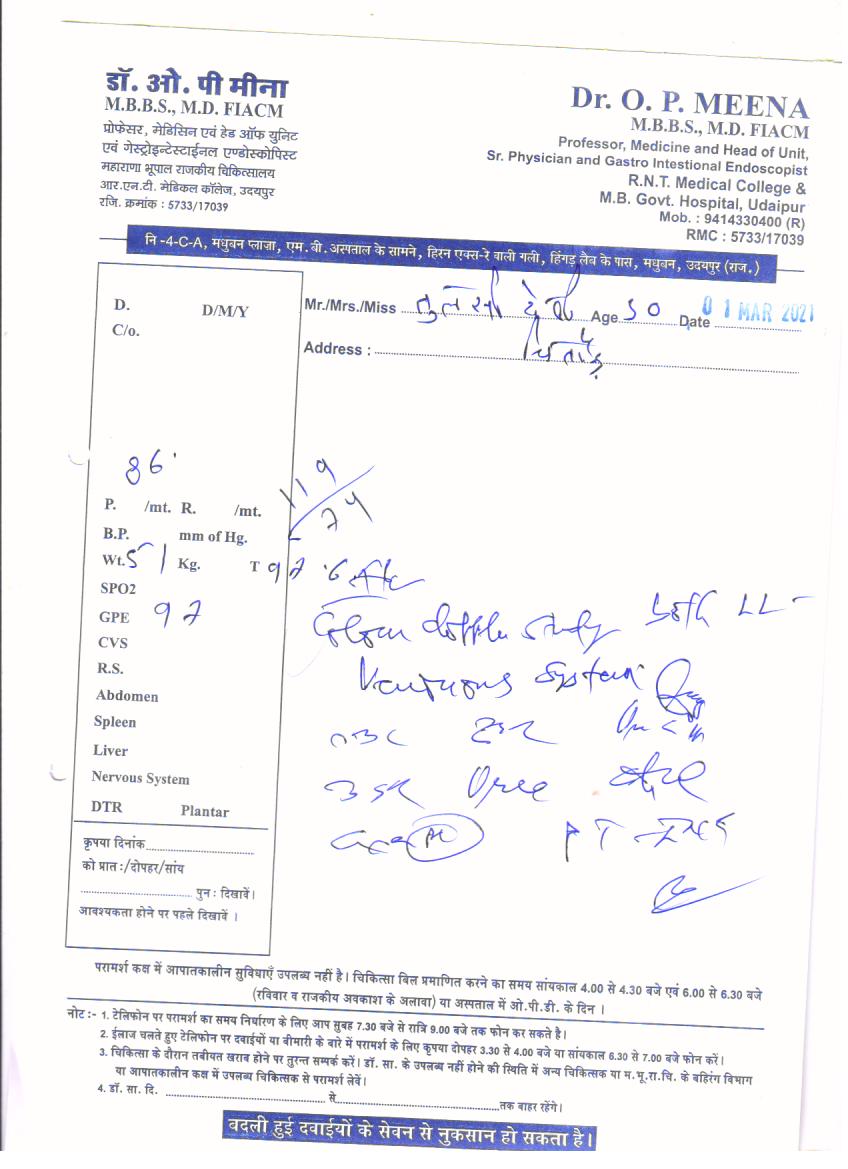 डॉ. ओ. पी मीना
M.B.B.S., M.D. FIACM
प्रोफेसर, मेडिसिन एवं हेड ऑफ युनिट
एवं गेस्ट्रोइन्टेस्टाईनल एण्डोस्कोपिस्ट
महाराणा भूपाल राजकीय चिकित्सालय
आर.एन.टी. मेडिकल कॉलेज, उदयपुर
रजि. क्रमांक : 5733/17039
Dr. O. P. MEENA
M.B.B.S., M.D. FIACM
Professor, Medicine and Head of Unit,
Sr. Physician and Gastro Intestional Endoscopist
R.N.T. Medical College &
M.B. Govt. Hospital, Udaipur
Mob. : 9414330400 (R)
RMC : 5733/17039
नि -4-C-A, मधुबन प्लाज़ा, एम.बी. अस्पताल के सामने, हिरन एक्स-रे वाली गली, हिंगड़ लैब के पास, मधुबन, उदयपुर (राज.)
Mr./Mrs./Miss तुलसी देवी Age 50 Date 01 MAR 2021
Address : चित्तौड़
D. D/M/Y
C/o.
86
119/74
P. /mt. R. /mt.
B.P. mm of Hg.
Wt. 51 Kg. T 97.6
SPO2
GPE 97
CVS
R.S.
Abdomen
Spleen
Liver
Nervous System
DTR Plantar
Colour doppler study both LL
Venous system
Urea
PT-INR
कृपया दिनांक
को प्रात:/दोपहर/सांय
पुन: दिखावें।
आवश्यकता होने पर पहले दिखावें ।
परामर्श कक्ष में आपातकालीन सुविधाएँ उपलब्ध नहीं है। चिकित्सा बिल प्रमाणित करने का समय सांयकाल 4.00 से 4.30 बजे एवं 6.00 से 6.30 बजे
(रविवार व राजकीय अवकाश के अलावा) या अस्पताल में ओ.पी.डी. के दिन ।
नोट :- 1. टेलिफोन पर परामर्श का समय निर्धारण के लिए आप सुबह 7.30 बजे से रात्रि 9.00 बजे तक फोन कर सकते है।
2. ईलाज चलते हुए टेलिफोन पर दवाईयों या बीमारी के बारे में परामर्श के लिए कृपया दोपहर 3.30 से 4.00 बजे या सांयकाल 6.30 से 7.00 बजे फोन करें।
3. चिकित्सा के दौरान तबीयत खराब होने पर तुरन्त सम्पर्क करें। डॉ. सा. के उपलब्ध नहीं होने की स्थिति में अन्य चिकित्सक या म.भू.रा.चि. के बहिरंग विभाग
या आपातकालीन कक्ष में उपलब्ध चिकित्सक से परामर्श लेवें।
4. डॉ. सा. दि. से तक बाहर रहेंगे।
बदली हुई दवाईयों के सेवन से नुकसान हो सकता है।